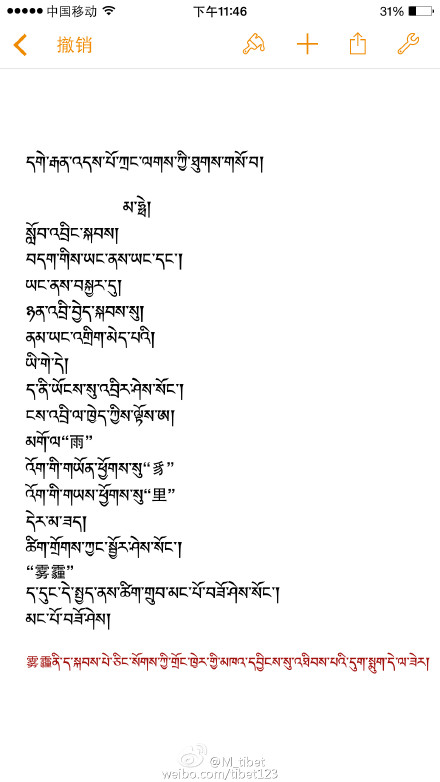 中国移动 下午11:46 31%
撤销
དགེ་རྒན་འདས་པོ་ཀྲང་ལགས་ཀྱི་ཐུགས་གསོ་བ།
མ་ཧྥེ།
སློབ་འབྲིང་སྐབས།
བདག་གིས་ཡང་ནས་ཡང་དང་།
ཡང་ནས་བསྐྱར་དུ།
ཉན་འབྲི་བྱེད་སྐབས་སུ།
ནམ་ཡང་འགྲིག་མེད་པའི།
ཡི་གེ་དེ།
ད་ནི་ཡོངས་སུ་འབྲིར་ཤེས་སོང་།
ངས་འབྲི་ལ་ཁྱེད་ཀྱིས་ལྟོས་ཨ།
མགོ་ལ“雨”
འོག་གི་གཡོན་ཕྱོགས་སུ“豸”
འོག་གི་གཡས་ཕྱོགས་སུ“里”
དེར་མ་ཟད།
ཚིག་གྲོགས་ཀྱང་སྦྱོར་ཤེས་སོང་།
“雾霾”
ད་དུང་དེ་སྤྱད་ནས་ཚིག་གྲུབ་མང་པོ་བཟོ་ཤེས་སོང་།
མང་པོ་བཟོ་ཤེས།
雾霾ནི་ད་སྐབས་པེ་ཅིང་སོགས་ཀྱི་གྲོང་ཁྱེར་གྱི་མཁའ་དབྱིངས་སུ་འཐིབས་པའི་དུག་སྨུག་དེ་ལ་ཟེར།
@M_tibet
weibo.com/tibet123